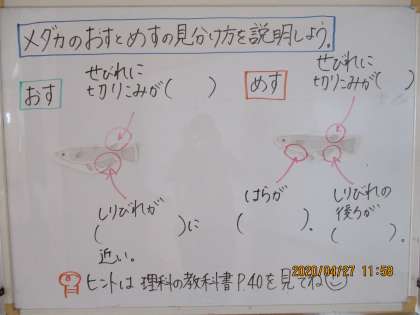 メダカのおすとめすの見分け方を説明しよう。
おす
せびれに
切りこみが(　　)
しりびれが
(　　　)に
近い。
めす
せびれに
切りこみが(　　)
はらが
(　　　)。
しりびれの
後ろが
(　　　)。
ヒントは理科の教科書P.40を見てね
2020/04/27 11:58